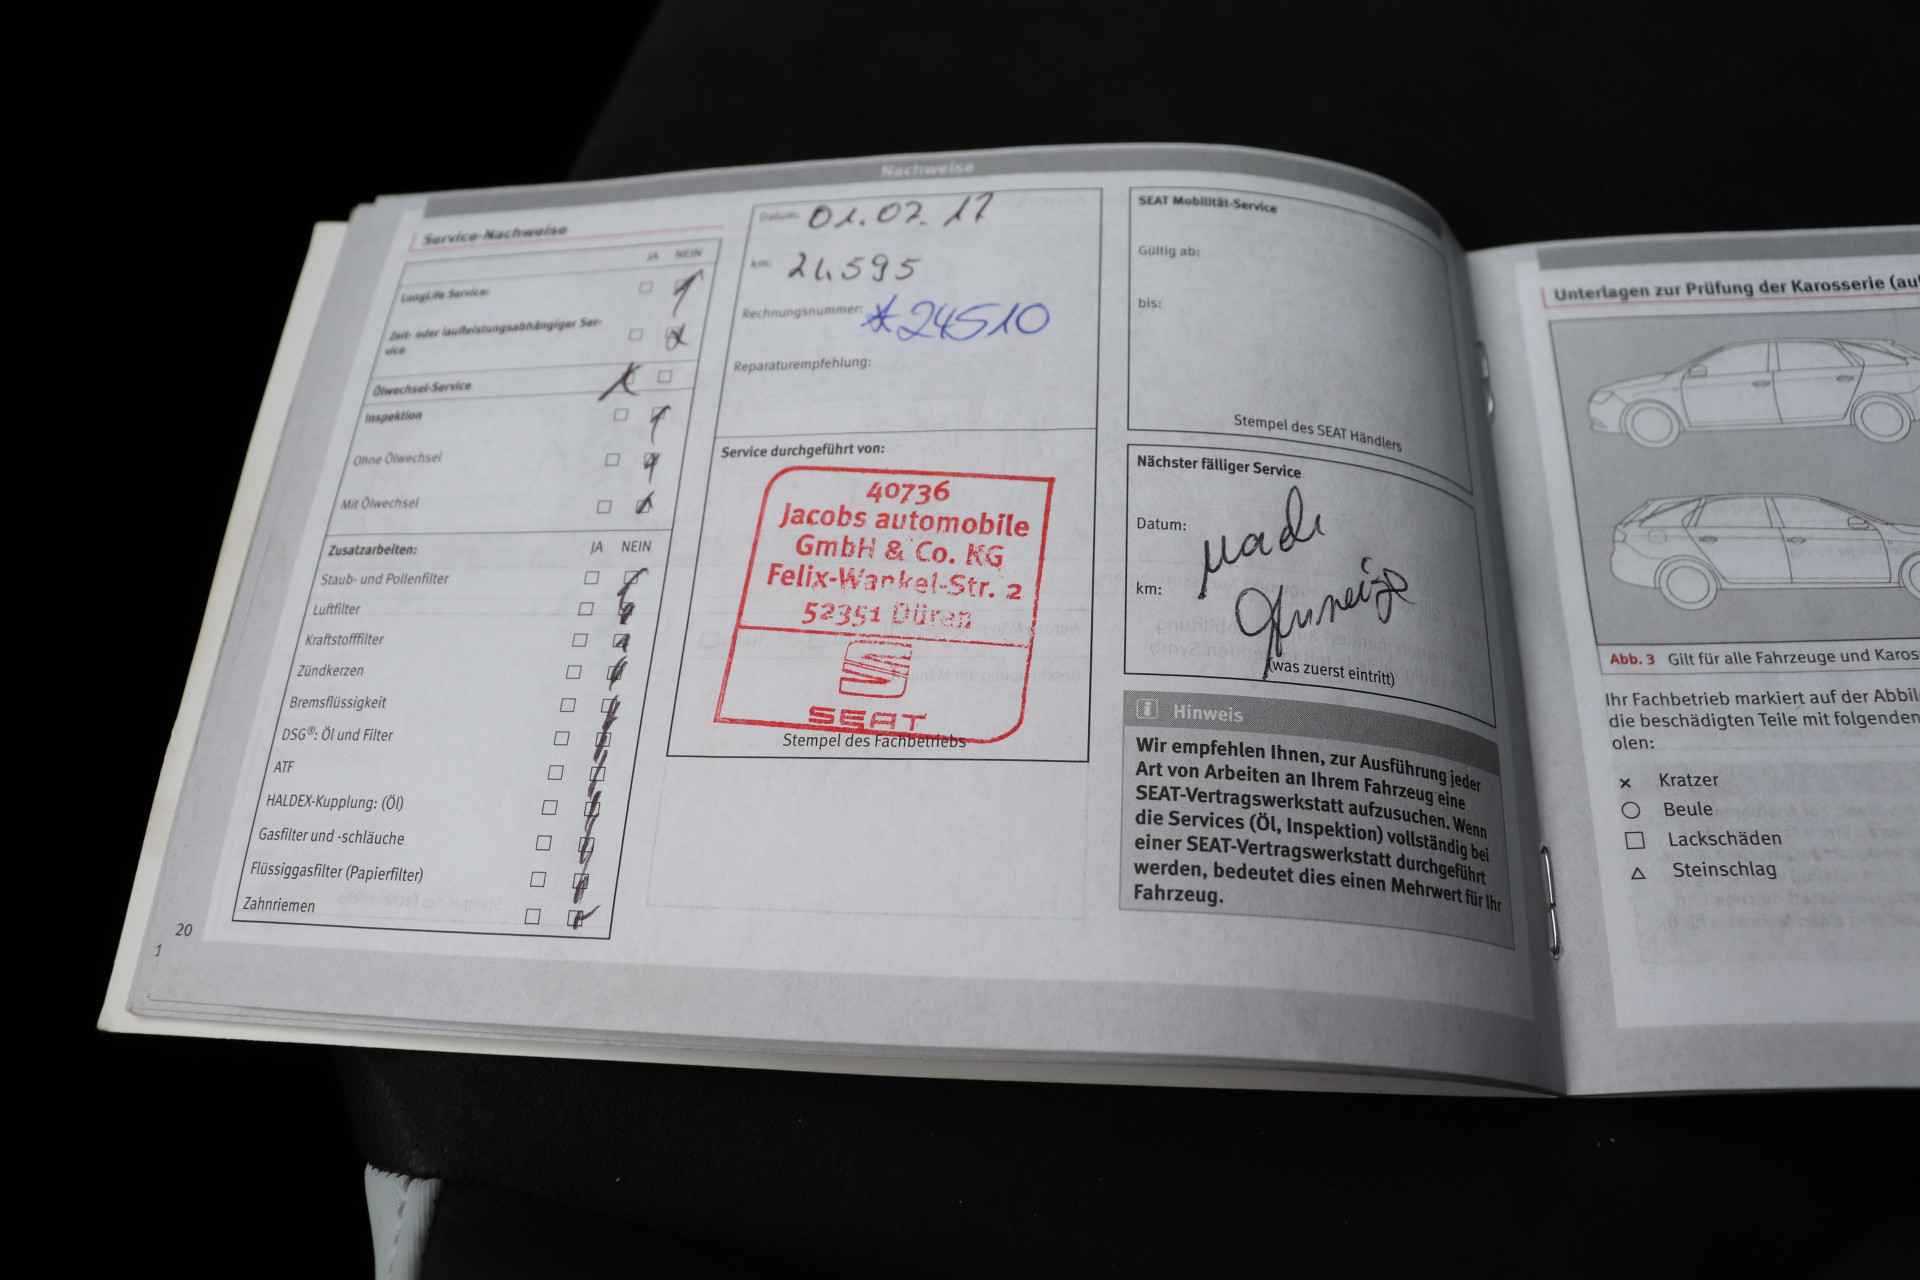 Nachweise
Service-Nachweise
JA NEIN
LongLife Service:
Zeit- oder laufleistungsabhängiger Ser-
vice
Ölwechsel-Service
Inspektion
Ohne Ölwechsel
Mit Ölwechsel
Zusatzarbeiten: JA NEIN
Staub- und Pollenfilter
Luftfilter
Kraftstofffilter
Zündkerzen
Bremsflüssigkeit
DSG®: Öl und Filter
ATF
HALDEX-Kupplung: (Öl)
Gasfilter und -schläuche
Flüssiggasfilter (Papierfilter)
Zahnriemen
20
1
Datum: 01.02.17
km: 24595
Rechnungsnummer: *24510
Reparaturempfehlung:
Service durchgeführt von:
40736
Jacobs automobile
GmbH & Co. KG
Felix-Wankel-Str. 2
52351 Düren
SEAT
Stempel des Fachbetriebs
SEAT Mobilität-Service
Gültig ab:
bis:
Stempel des SEAT Händlers
Nächster fälliger Service
Datum: nach
km: Anzeige
(was zuerst eintritt)
i Hinweis
Wir empfehlen Ihnen, zur Ausführung jeder
Art von Arbeiten an Ihrem Fahrzeug eine
SEAT-Vertragswerkstatt aufzusuchen. Wenn
die Services (Öl, Inspektion) vollständig bei
einer SEAT-Vertragswerkstatt durchgeführt
werden, bedeutet dies einen Mehrwert für Ihr
Fahrzeug.
Unterlagen zur Prüfung der Karosserie (au
Abb. 3 Gilt für alle Fahrzeuge und Karos
Ihr Fachbetrieb markiert auf der Abbil
die beschädigten Teile mit folgenden
olen:
× Kratzer
○ Beule
□ Lackschäden
△ Steinschlag